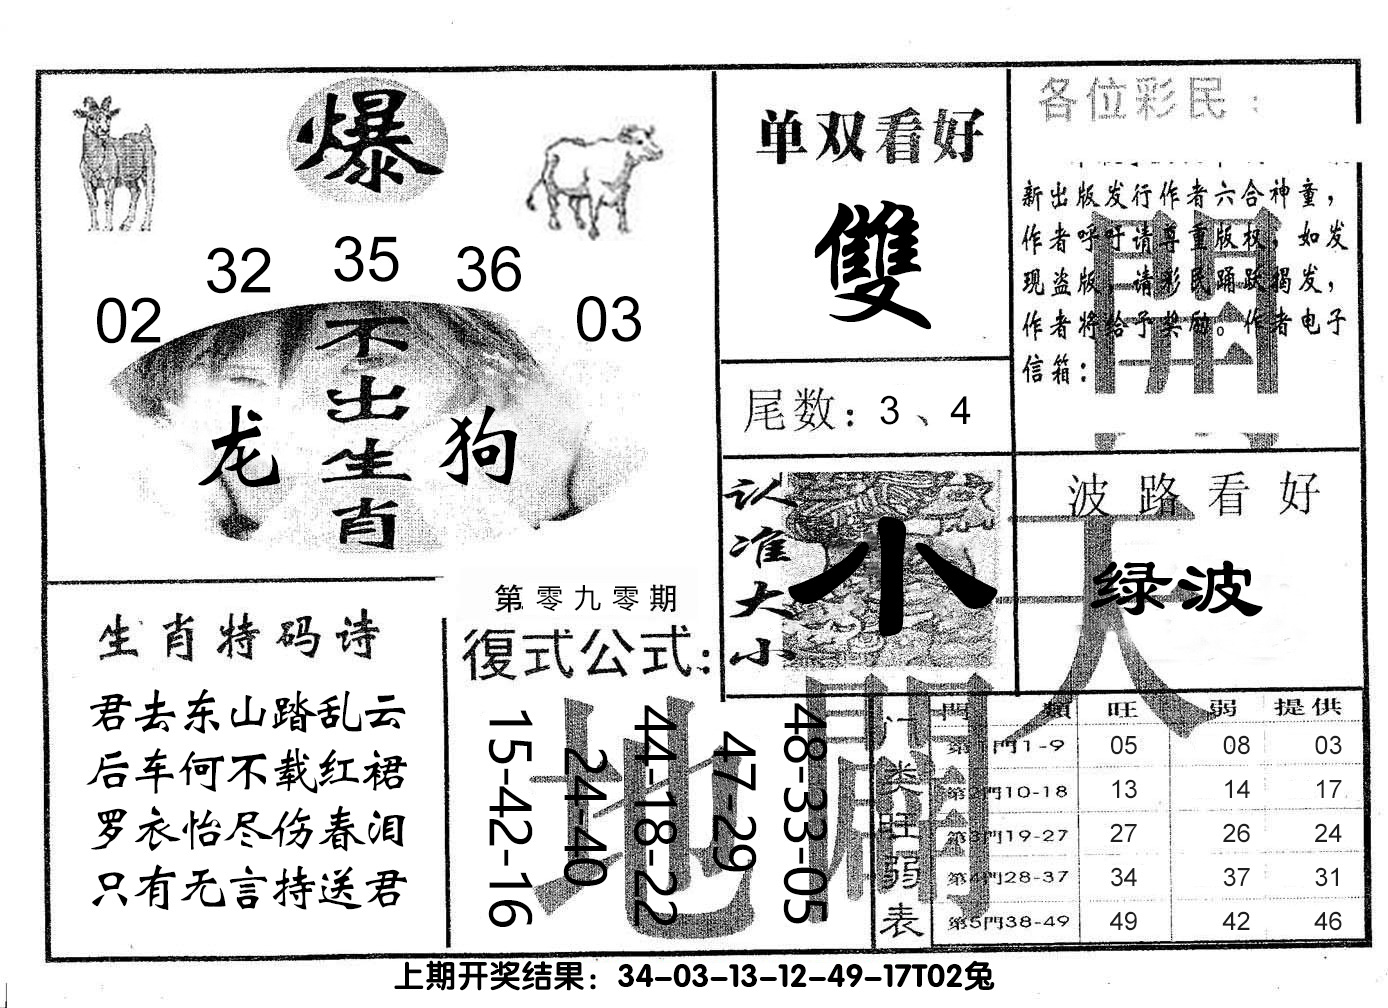 爆
02 32 35 36 03
不出生肖
龙 狗
单双看好
雙
尾数：3、4
各位彩民：
新出版发行作者六合神童，
作者呼吁请尊重版权，如发
现盗版，请彩民踊跃揭发，
作者将给予奖励。作者电子
信箱：
開
认准大小
小
波路看好
绿波
天
生肖特码诗
君去东山踏乱云
后车何不载红裙
罗衣怡尽伤春泪
只有无言持送君
第零九零期
復式公式：
15-42-16
24-40
44-18-22
47-29
48-33-05
地
開
门类旺弱表
門類 旺 弱 提供
第1門1-9 05 08 03
第2門10-18 13 14 17
第3門19-27 27 26 24
第4門28-37 34 37 31
第5門38-49 49 42 46
上期开奖结果：34-03-13-12-49-17T02兔